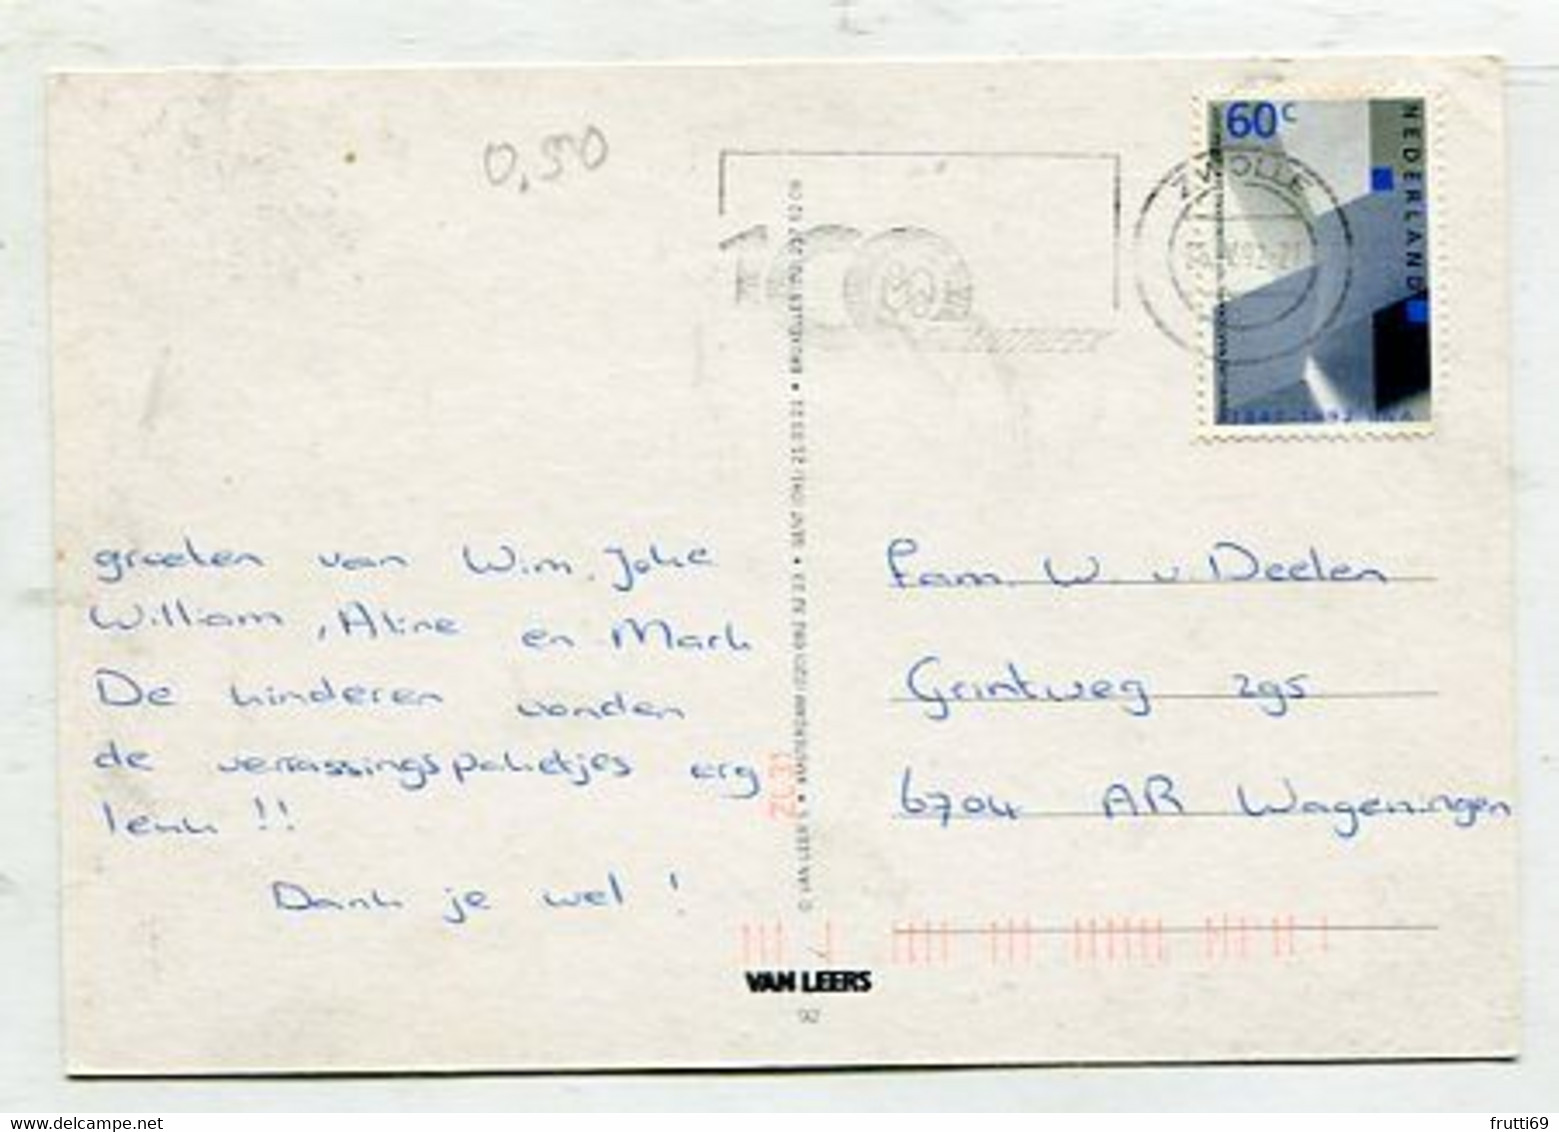 0,50
60c
NEDERLAND
ZWOLLE
100
groeten van Wim, Joke
William, Aline en Mark
De kinderen vonden
de verrassingspaketjes erg
leuk !!
Dank je wel !
Fam. W. v Deelen
Grintweg 295
6704 AR Wageningen
VAN LEERS
92
frutti69